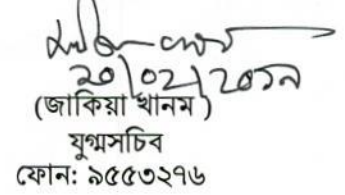 ২০/০২/২০১৯
(জাকিয়া খানম)
যুগ্মসচিব
ফোন: ৯৫৫৩২৭৬